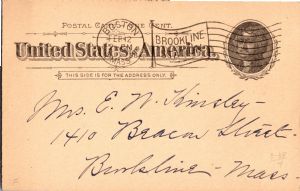 POSTAL CARD ONE CENT.
United States of America.
THIS SIDE IS FOR THE ADDRESS ONLY.
BOSTON
MASS
BROOKLINE
Mrs. E. W. Kinsley -
1410 Beacon Street -
Brookline - Mass -